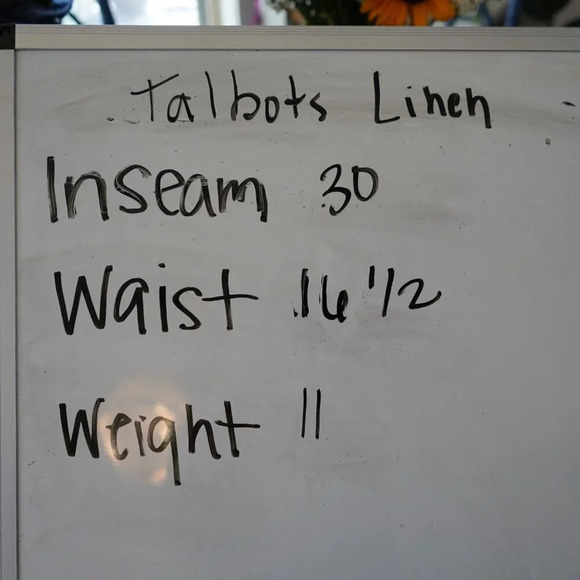 Talbots Linen
Inseam 30
Waist 16 1/2
Weight 11